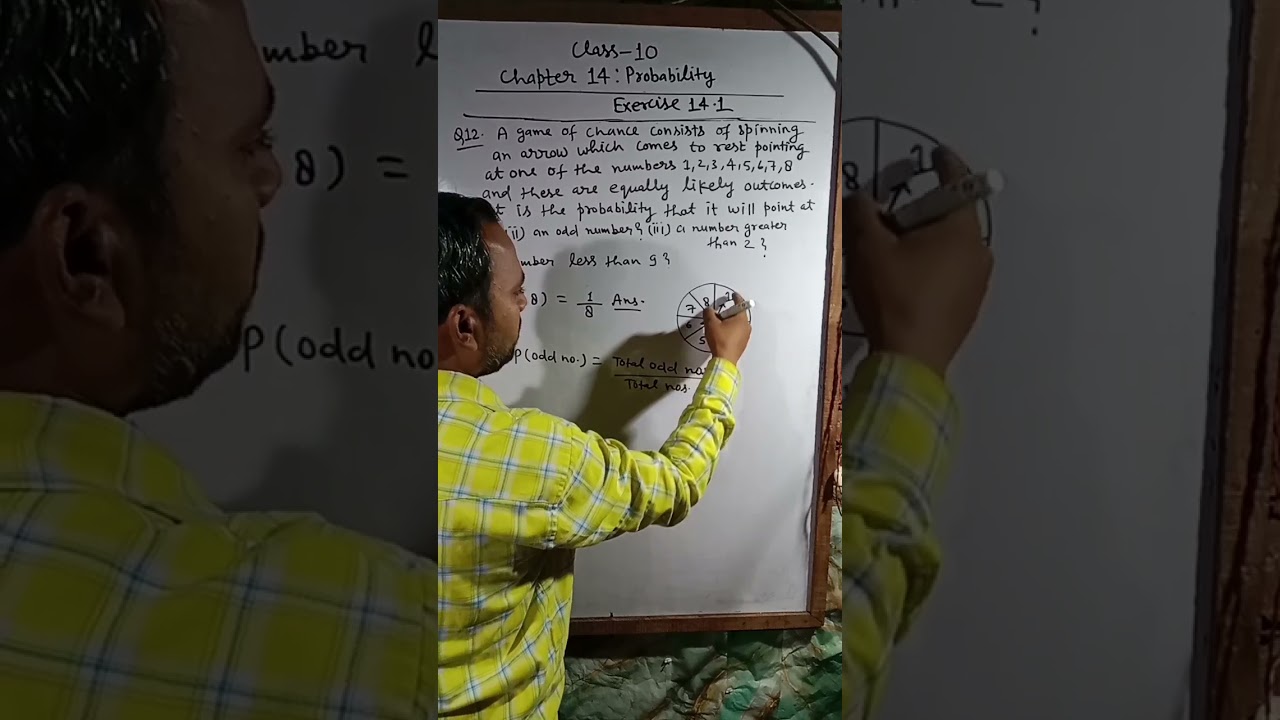 Class-10
Chapter 14: Probability
Exercise 14.1
Q12. A game of chance consists of spinning
an arrow which comes to rest pointing
at one of the numbers 1,2,3,4,5,6,7,8
and these are equally likely outcomes.
is the probability that it will point at
(ii) an odd number? (iii) a number greater
than 2?
less than 9?
8) = 1/8 Ans.
7 8 1
6
5
P(odd no.) = Total odd no
Total nos.